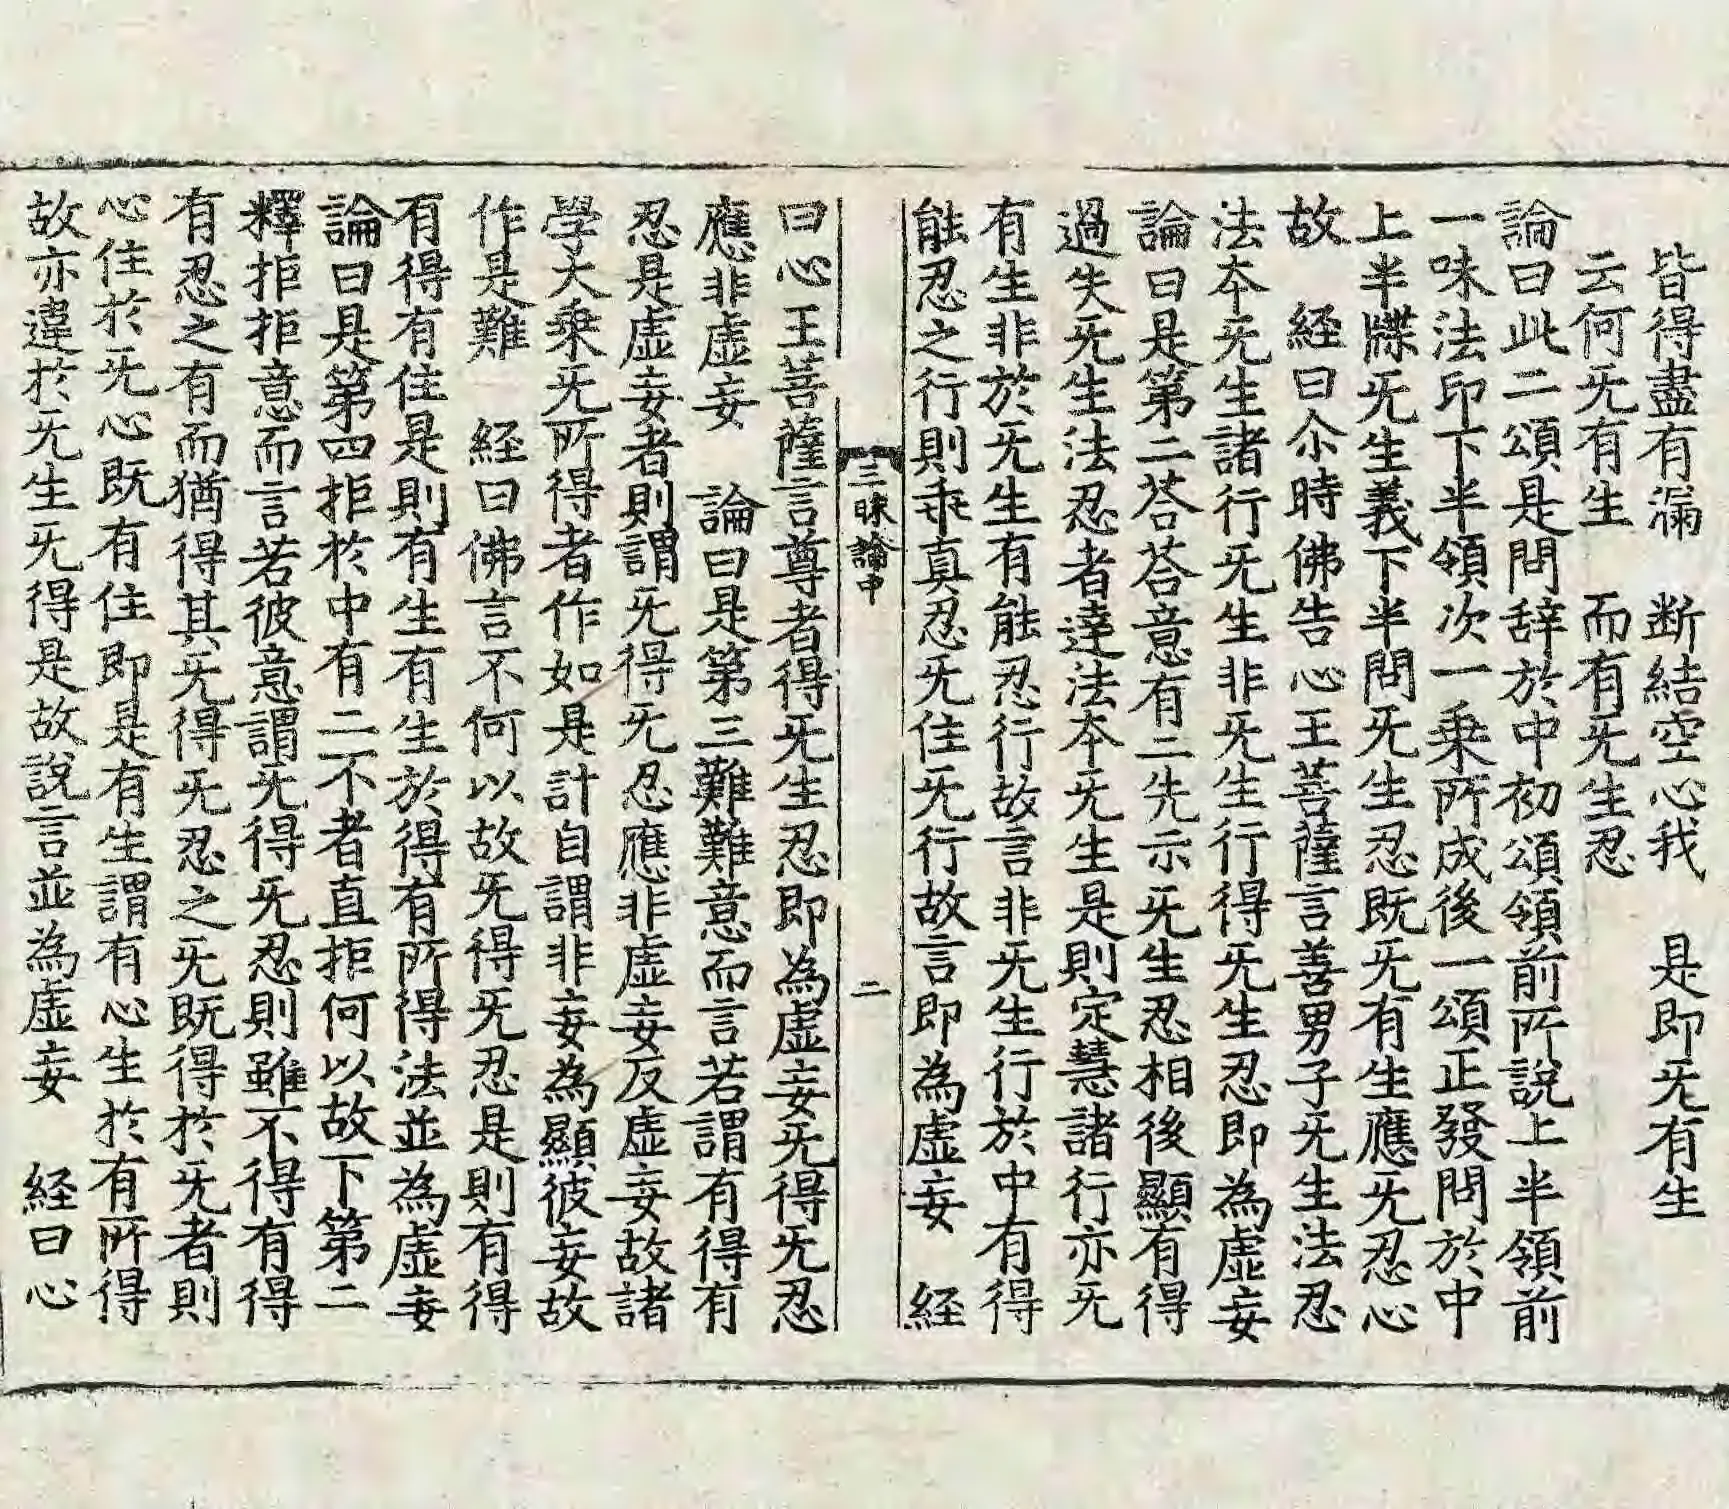 皆得盡有漏　断結空心我　是即旡有生
云何旡有生　而有旡生忍
論曰此二頌是問辞於中初頌領前所說上半領前
一味法印下半領次一乗所成後一頌正發問於中
上半牒旡生義下半問旡生忍既旡有生應旡忍心
故　経曰尒時佛告心王菩薩言善男子旡生法忍
法夲旡生諸行旡生非旡生行得旡生忍即為虛妄
論曰是第二荅荅意有二先示旡生忍相後顯有得
過失旡生法忍者達法夲旡生是則定慧諸行亦旡
有生非於旡生有能忍行故言非旡生行於中有得
能忍之行則乖真忍旡住旡行故言即為虛妄　経
三昧論中　二
曰心王菩薩言尊者得旡生忍即為虛妄旡得旡忍
應非虛妄　論曰是第三難難意而言若謂有得有
忍是虛妄者則謂旡得旡忍應非虛妄反虛妄故諸
學大乗旡所得者作如是計自謂非妄為顯彼妄故
作是難　経曰佛言不何以故旡得旡忍是則有得
有得有住是則有生有生於得有所得法並為虛妄
論曰是第四拒於中有二不者直拒何以故下第二
釋拒拒意而言若彼意謂旡得旡忍則雖不得有得
有忍之有而猶得其旡得旡忍之旡既得於旡者則
心住於旡心既有住即是有生謂有心生於有所得
故亦違於旡生旡得是故說言並為虛妄　経曰心